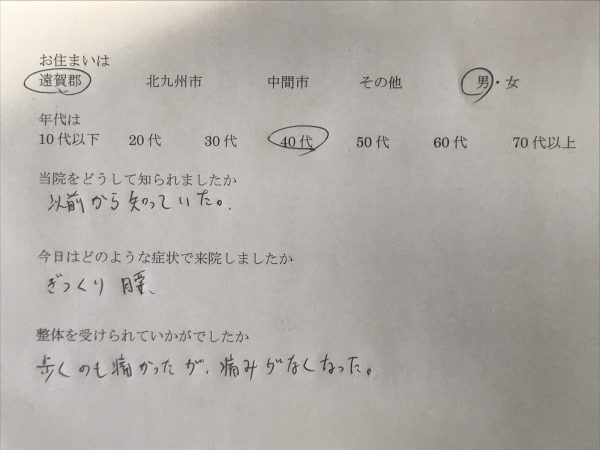 お住まいは
遠賀郡 北九州市 中間市 その他 男・女
年代は
10代以下 20代 30代 40代 50代 60代 70代以上
当院をどうして知られましたか
以前から知っていた。
今日はどのような症状で来院しましたか
ぎっくり腰、
整体を受けられていかがでしたか
歩くのも痛かったが、痛みがなくなった。